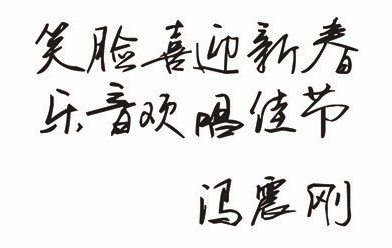 笑脸喜迎新春
乐音欢唱佳节
冯震刚